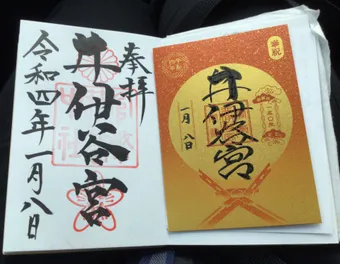 奉拝
井伊谷宮
令和四年一月八日
奉祝
井伊谷宮
一月八日